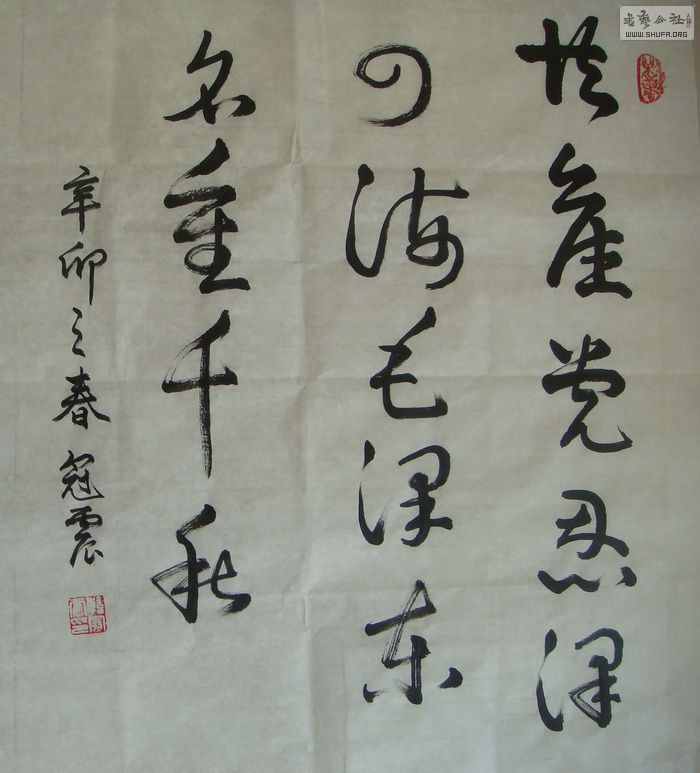 共產党恩泽
四海毛泽东
名重千秋
辛卯之春 冠震
書藝公社
WWW.SHUFA.ORG